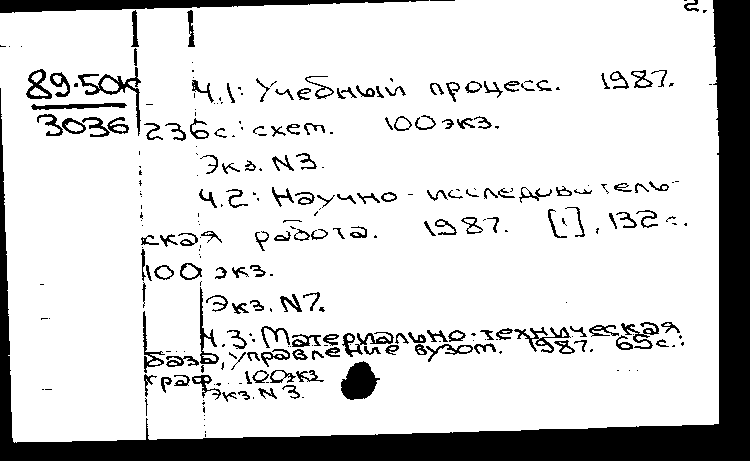 2.
89-50к
3036
Ч.1: Учебный процесс. 1987.
236с.: схем. 100экз.
Экз. N3.
Ч.2: Научно-исследователь-
ская работа. 1987. [1], 132с.
100 экз.
Экз. N7.
Ч.3: Материально-техническая
база, управление вузом. 1987. 69с.:
граф. 100экз
Экз. N 3.